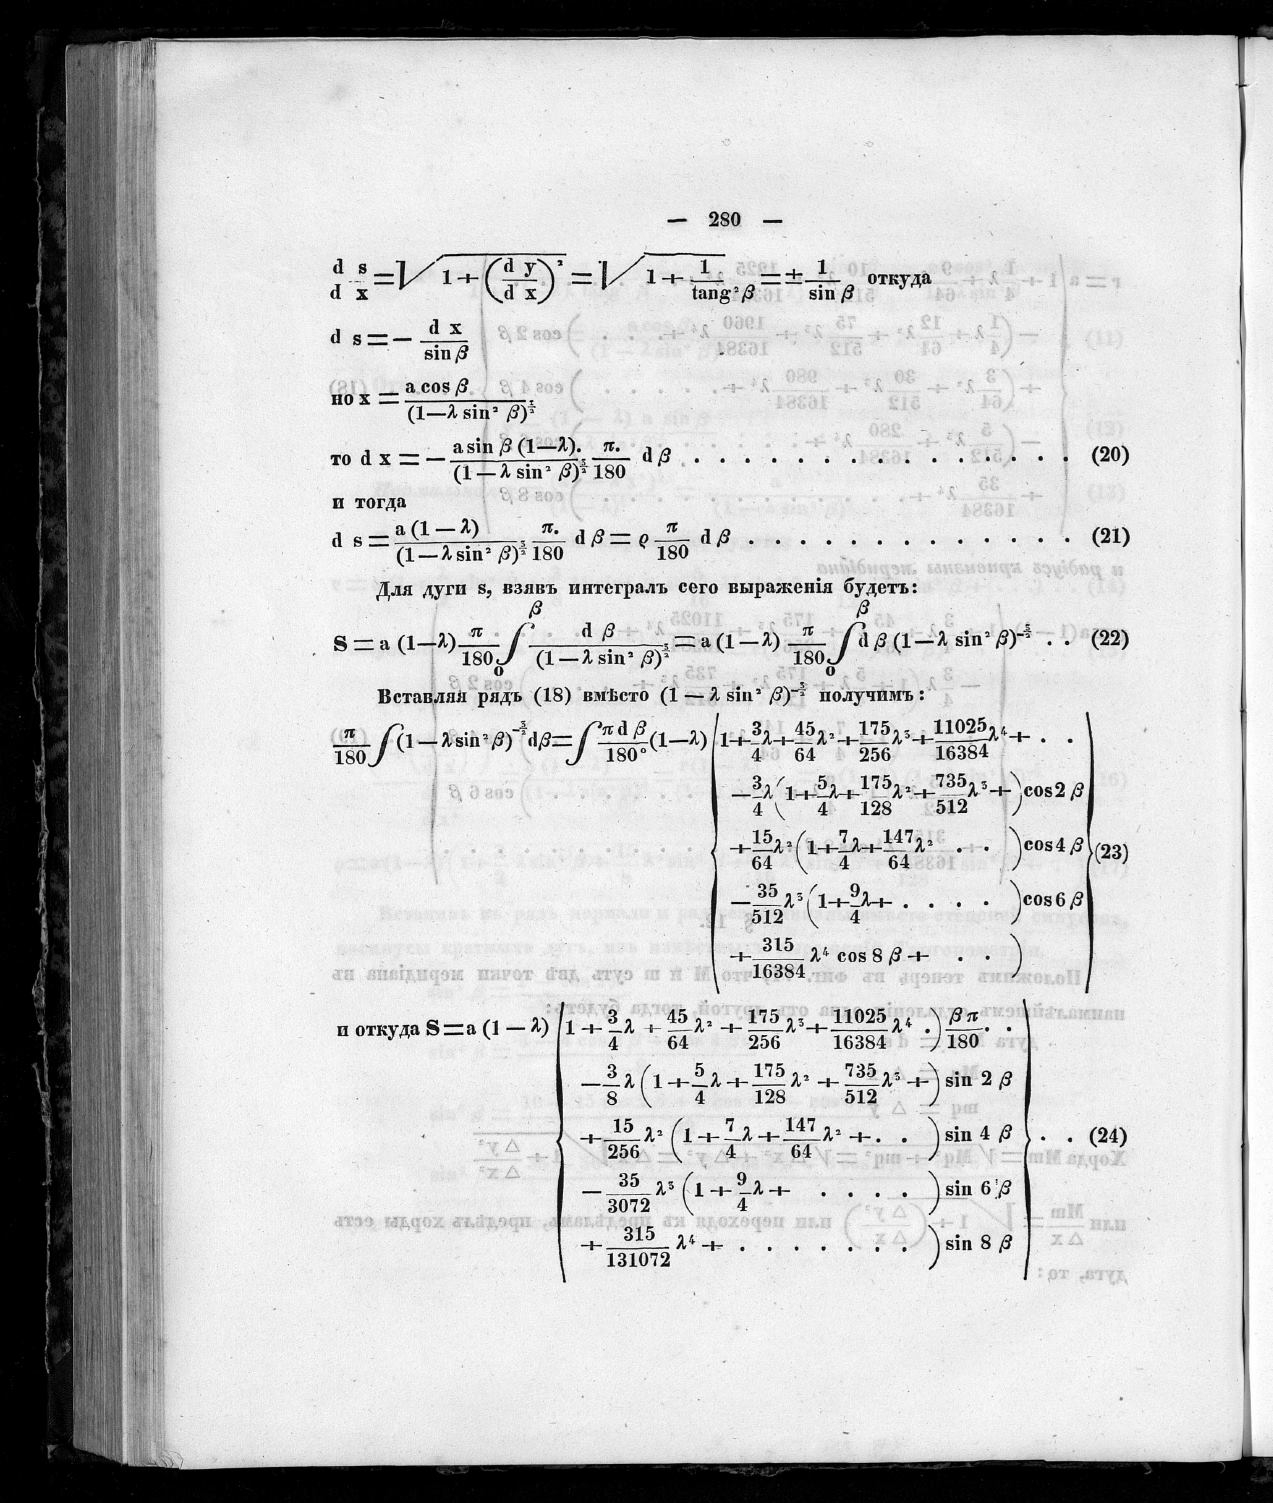 — 280 —
d s / d x = √ 1 + (d y / d x)² = √ 1 + 1 / tang² β = ± 1 / sin β откуда
d s = — d x / sin β
но x = a cos β / (1—λ sin² β)^½
то d x = — a sin β (1—λ). / (1 — λ sin² β)^3/2 π. / 180 d β . . . . . . . . . . . . . . . (20)
и тогда
d s = a (1 — λ) / (1—λ sin² β)^3/2 π. / 180 d β = ϱ π / 180 d β . . . . . . . . . . . . . (21)
Для дуги s, взявъ интегралъ сего выраженія будетъ:
S = a (1—λ) π / 180 ∫₀^β d β / (1—λ sin² β)^3/2 = a (1—λ) π / 180 ∫₀^β d β (1—λ sin² β)^—3/2 . . (22)
Вставляя рядъ (18) вмѣсто (1 — λ sin² β)^—3/2 получимъ:
π / 180 ∫ (1—λ sin² β)^—3/2 dβ = ∫ π d β / 180° (1—λ) { 1 + 3/4 λ + 45/64 λ² + 175/256 λ³ + 11025/16384 λ⁴ + . .
— 3/4 λ (1 + 5/4 λ + 175/128 λ² + 735/512 λ³ + ) cos 2 β
+ 15/64 λ² (1 + 7/4 λ + 147/64 λ² . . ) cos 4 β } (23)
— 35/512 λ³ (1 + 9/4 λ + . . . . ) cos 6 β
+ 315/16384 λ⁴ cos 8 β + . . )
и откуда S = a (1 — λ) { 1 + 3/4 λ + 45/64 λ² + 175/256 λ³ + 11025/16384 λ⁴ . ) β π / 180 . .
— 3/8 λ (1 + 5/4 λ + 175/128 λ² + 735/512 λ³ + ) sin 2 β
+ 15/256 λ² (1 + 7/4 λ + 147/64 λ² + . . ) sin 4 β } . . (24)
— 35/3072 λ³ (1 + 9/4 λ + . . . . ) sin 6 β
+ 315/131072 λ⁴ + . . . . . . . ) sin 8 β